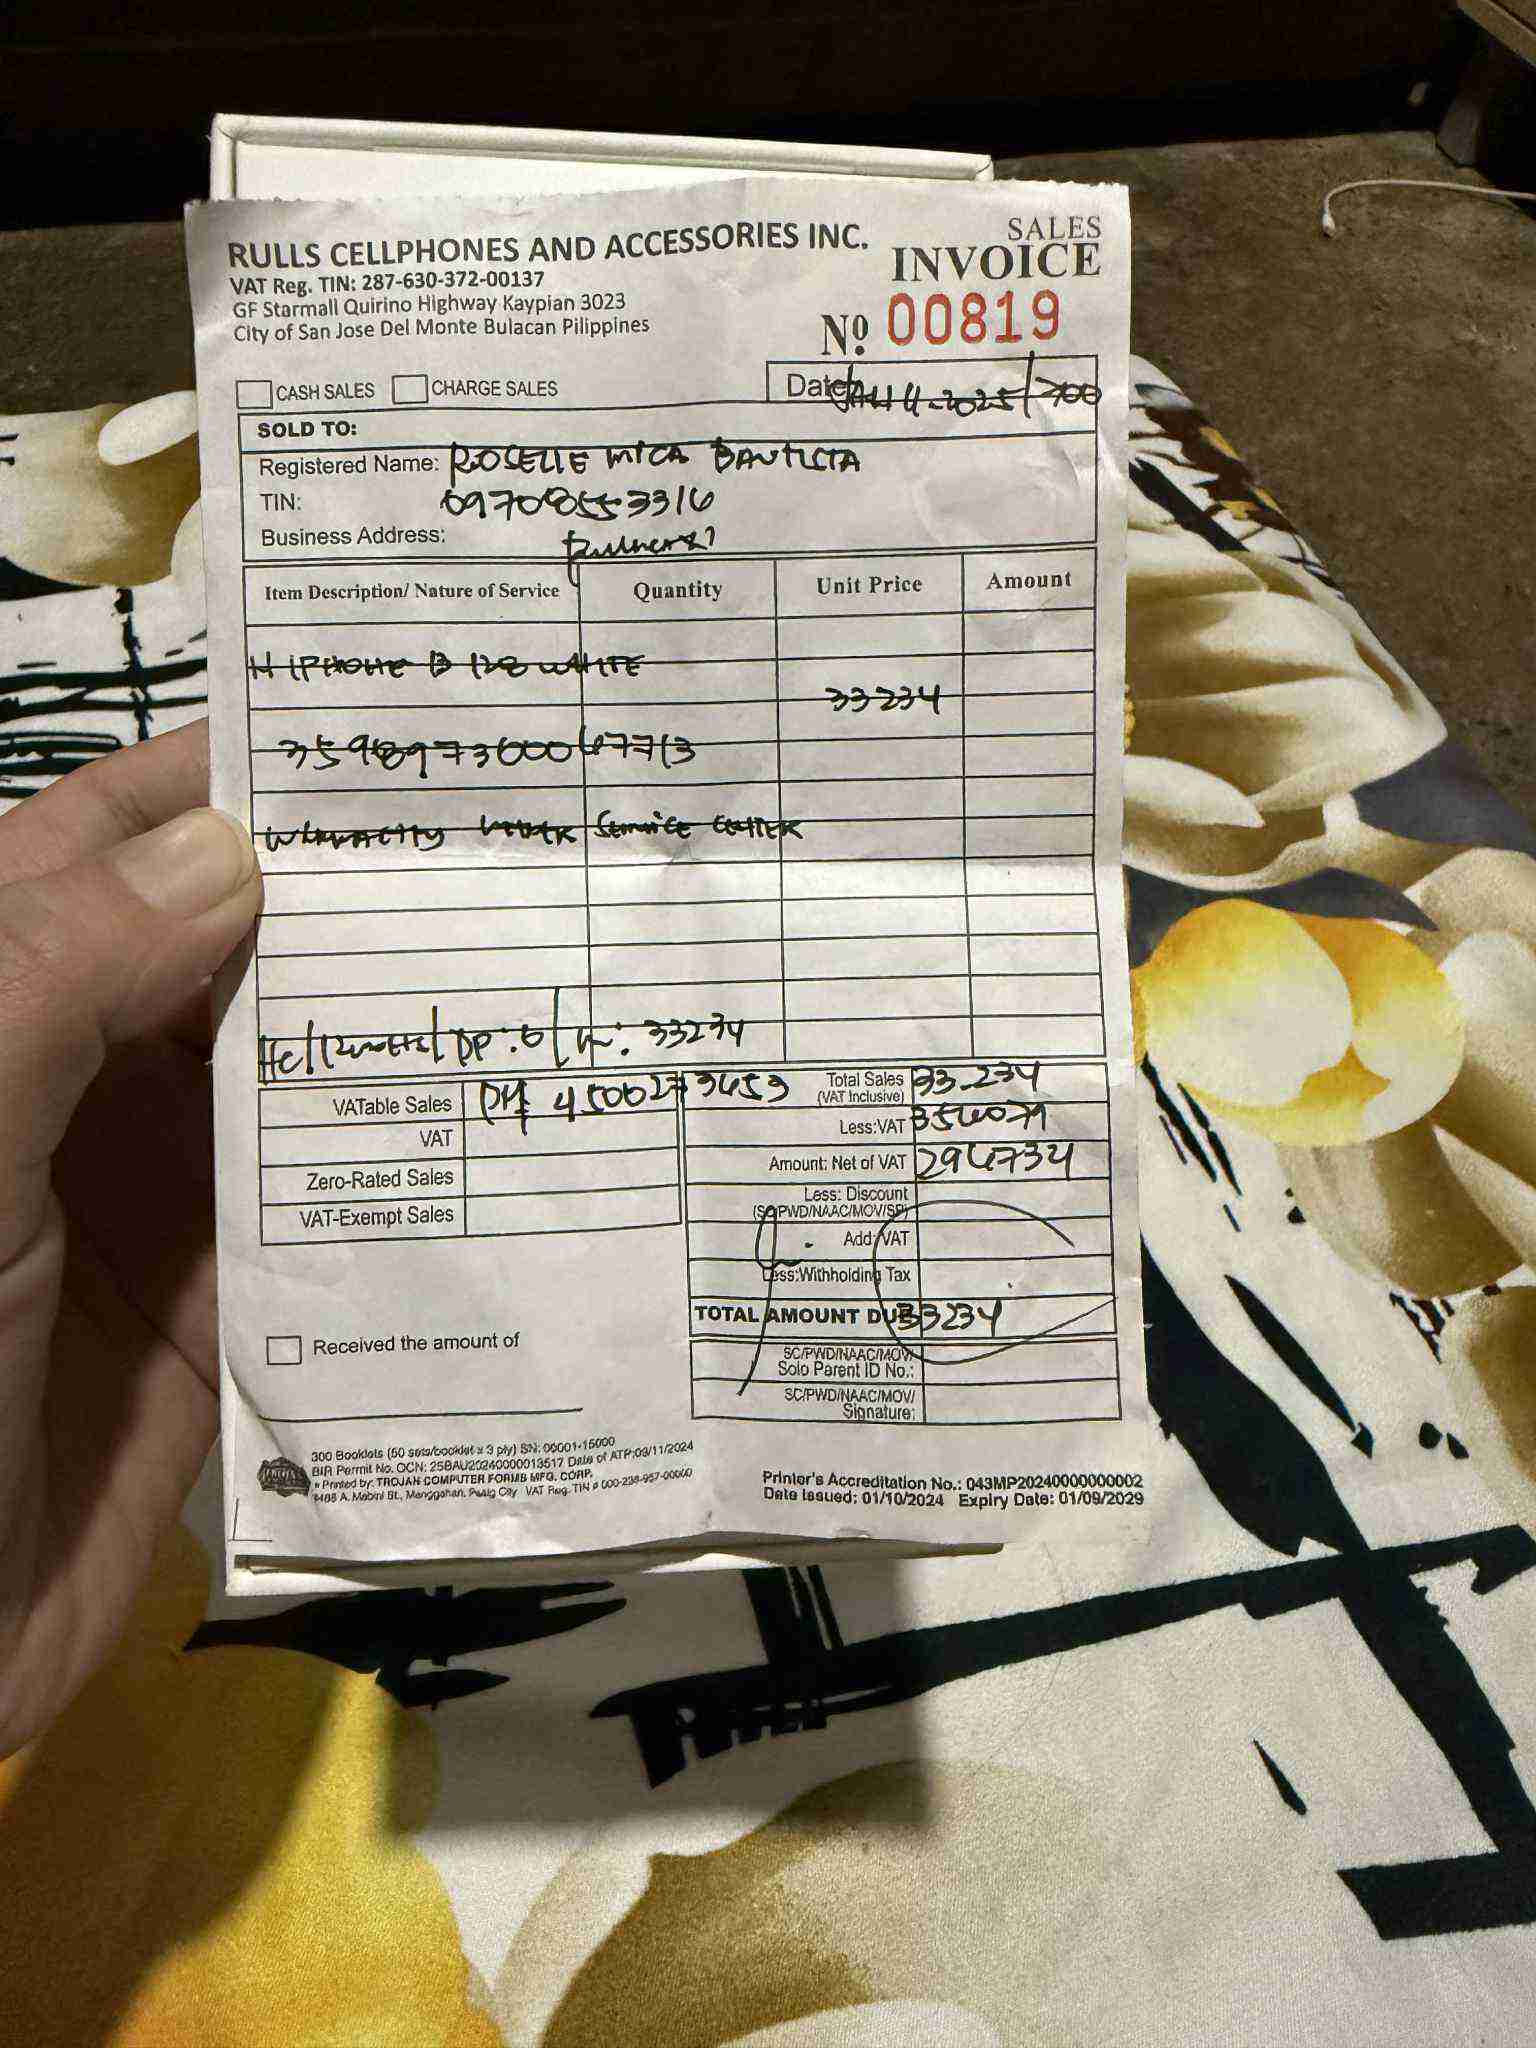 RULLS CELLPHONES AND ACCESSORIES INC.
VAT Reg. TIN: 287-630-372-00137
GF Starmall Quirino Highway Kaypian 3023
City of San Jose Del Monte Bulacan Pilippines
SALES
INVOICE
Nº. 00819
CASH SALES CHARGE SALES
Date 2025/700
SOLD TO:
Registered Name: ROSELLE MICA BAUTISTA
TIN: 09708553316
Business Address:
Item Description/ Nature of Service Quantity Unit Price Amount
IPHONE 13 128 WHITE
33234
WARRANTY UNDER SERVICE CENTER
HC/ DP: 0/ 33234
VATable Sales
VAT
Zero-Rated Sales
VAT-Exempt Sales
4500273653
Total Sales (VAT Inclusive) 33,234
Less: VAT
Amount: Net of VAT
Less: Discount
(SC/PWD/NAAC/MOV/SP)
Add: VAT
Less: Withholding Tax
TOTAL AMOUNT DUE 33234
SC/PWD/NAAC/MOV/
Solo Parent ID No.:
SC/PWD/NAAC/MOV/
Signature:
Received the amount of
300 Booklets (50 sets/booklet x 3 ply) SN: 00001-15000
BIR Permit No. OCN: 25BAU20240000013517 Date of ATP:09/11/2024
Printed by: TROJAN COMPUTER FORMS MFG. CORP.
A. Mabini St., Manggahan, Pasig City VAT Reg. TIN # 000-238-957-00000
Printer's Accreditation No.: 043MP20240000000002
Date Issued: 01/10/2024 Expiry Date: 01/09/2029